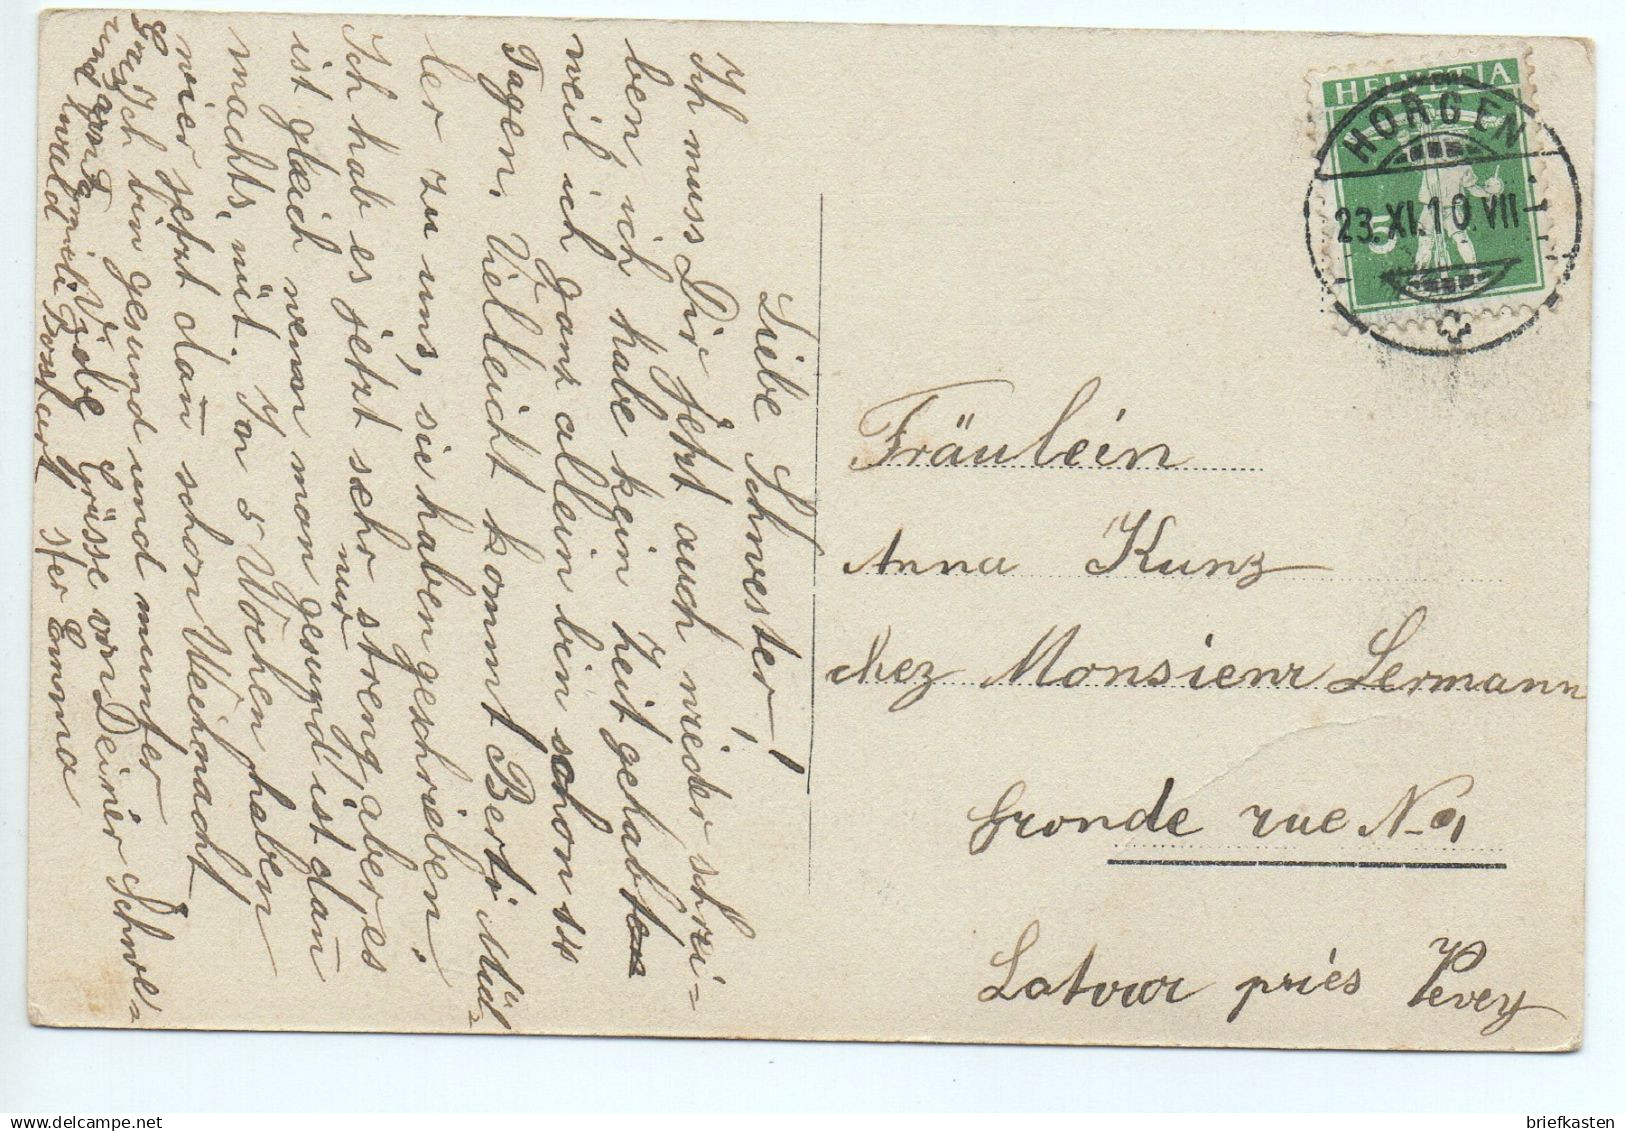 Liebe Schwester!
Ich muss Dir jetzt auch wieder schrei=
ben, ich habe kein Zeit gehabt
weil ich ganz allein bin schon 14
Tagen. Vielleicht kommt Berti Mül=
ler zu uns, sie haben geschrieben.
Ich hab es jetzt sehr streng aber es
nur
ist gleich wenn man gesund ist dann
machts nüt. In 5 Wochen haben
wier jetzt dann schon Weihnacht
Ich bin gesund und munter
Viele Grüsse von Deiner Schwe=
ster Emma
HELVETIA
5
HORGEN
23.XI.10.VII
Fräulein
Anna Kunz
chez Monsieur Lermann
Grande rue No 1
Latour priés Vevey
briefkasten